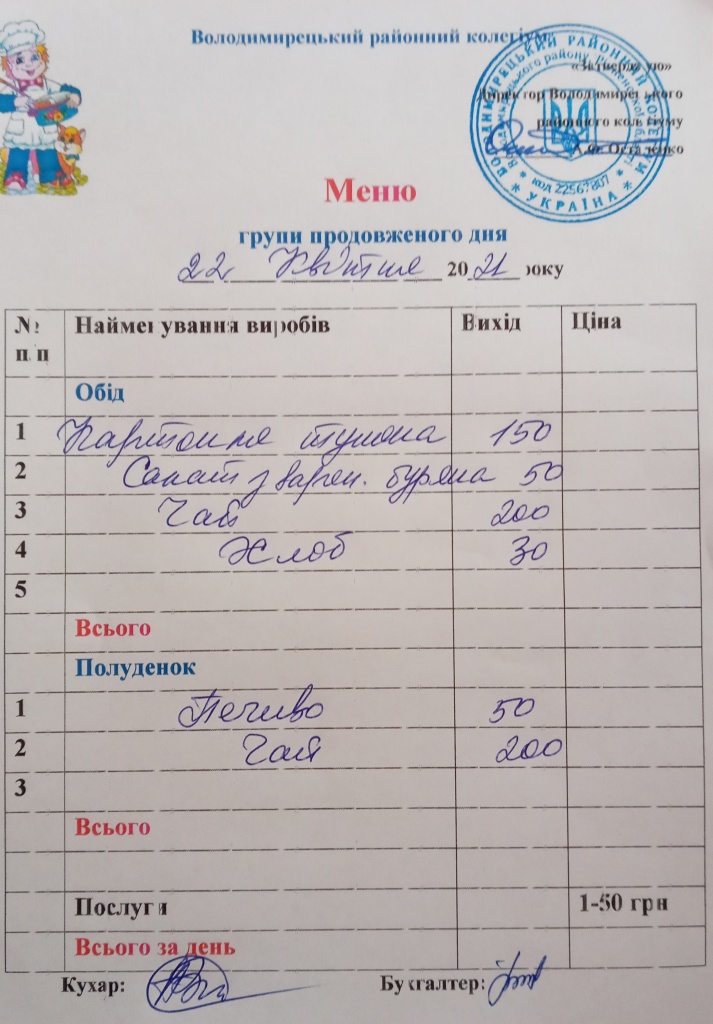 Володимирецький районний колегіум
«Затверджую»
Директор Володимирецького
районного колегіуму
А.Ф. Остапенко
ВОЛОДИМИРЕЦЬКИЙ РАЙОННИЙ КОЛЕГІУМ * УКРАЇНА *
* код 22567807 *
Меню
групи продовженого дня
22 квітня 2021 року
№ п/п Найменування виробів Вихід Ціна
Обід
1 Картопля тушена 150
2 Салат з варен. буряка 50
3 Чай 200
4 Хліб 30
5
Всього
Полуденок
1 Печиво 50
2 Чай 200
3
Всього
Послуги 1-50 грн
Всього за день
Кухар: Бухгалтер: